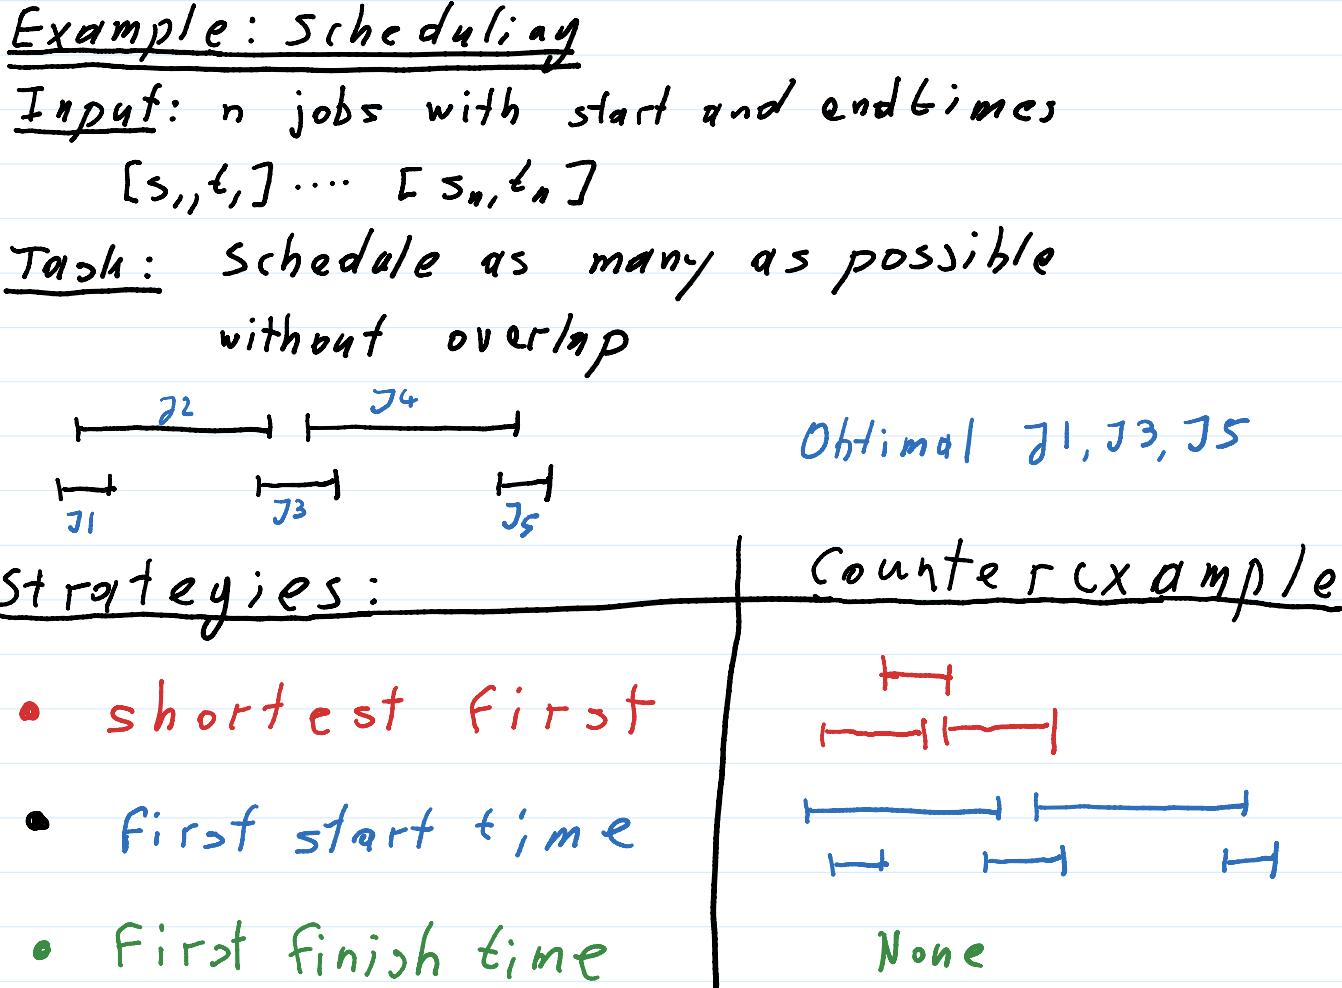 Example: Scheduling
Input: n jobs with start and endtimes
[s₁, t₁] ..... [sₙ, tₙ]
Task: Schedule as many as possible
without overlap
J2 J4
Obtimal J1, J3, J5
J1 J3 J5
Strategies: Counterexample
• shortest First
• First start time
• First finish time None